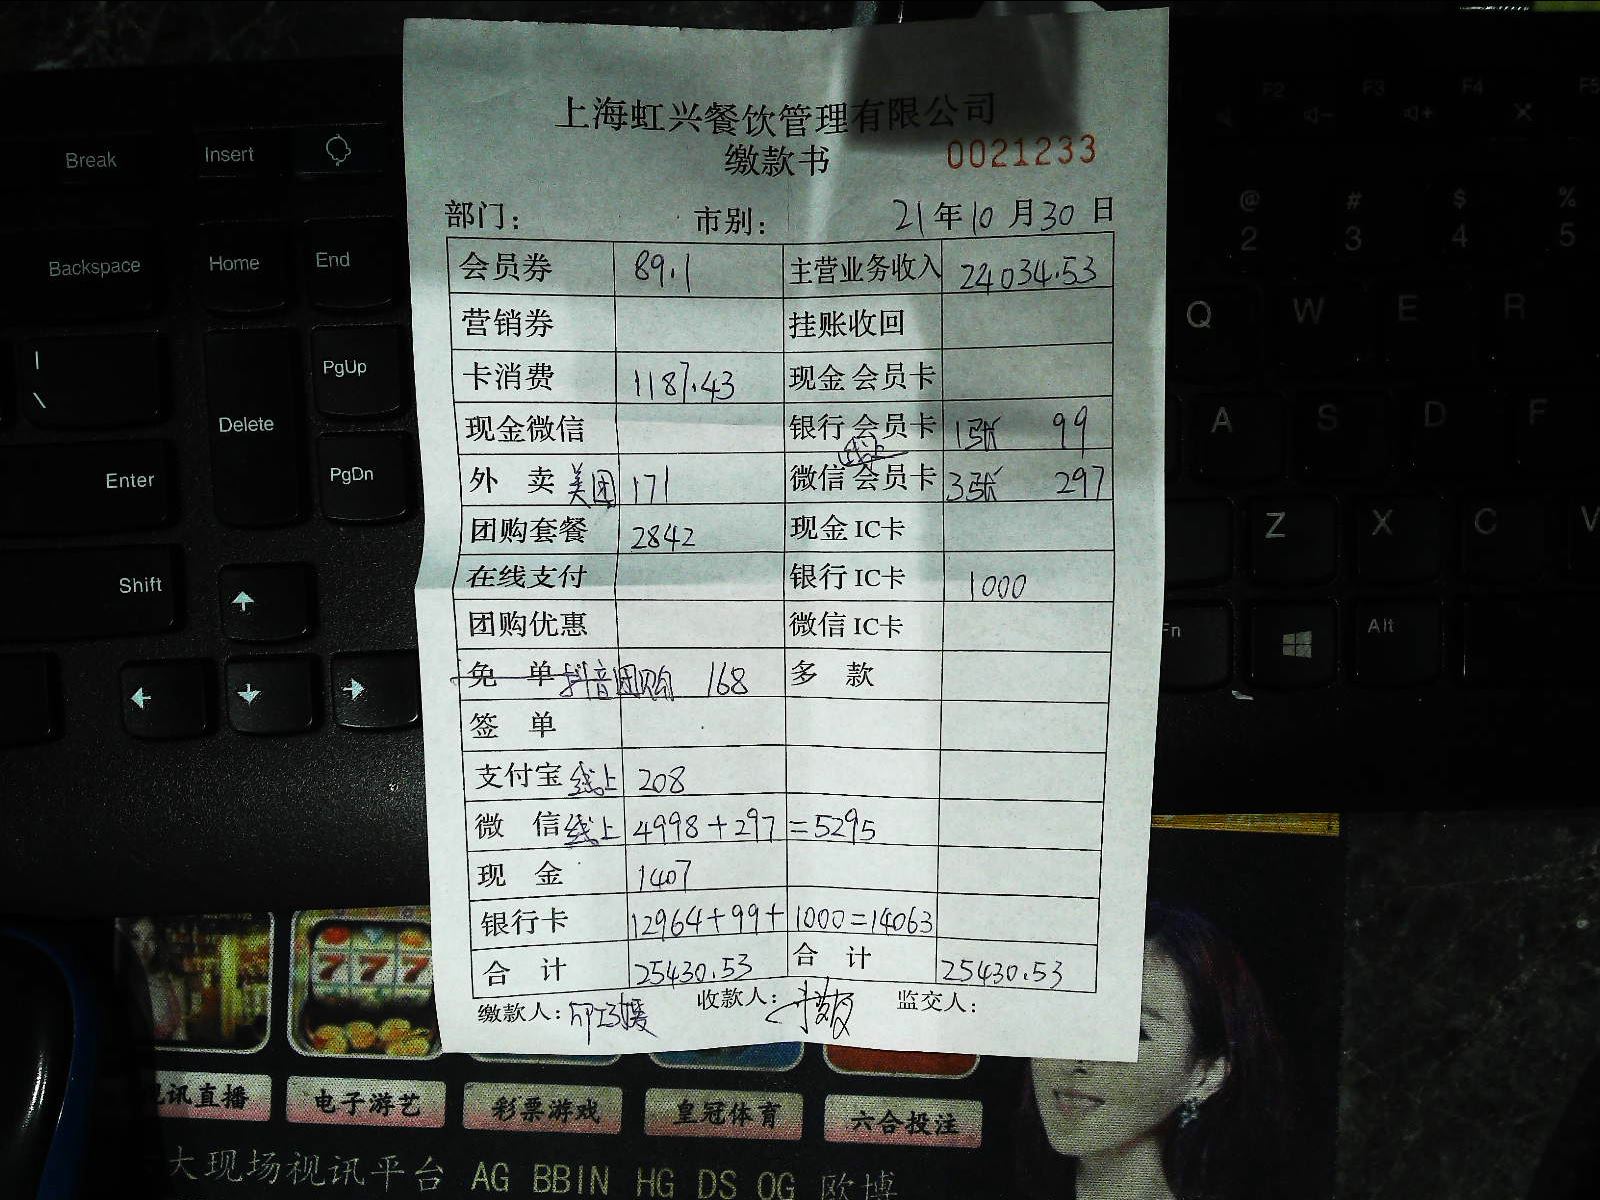 上海虹兴餐饮管理有限公司
缴款书 0021233
部门： 市别： 21年10月30日
会员券 89.1 主营业务收入 24034.53
营销券 挂账收回
卡消费 1187.43 现金会员卡
现金微信 银行会员卡 1张 99
外卖 美团 171 微信 线上 会员卡 3张 297
团购套餐 2842 现金IC卡
在线支付 银行IC卡 1000
团购优惠 微信IC卡
免单 抖音团购 168 多款
签单
支付宝 线上 208
微信 线上 4998+297=5295
现金 1407
银行卡 12964+99+1000=14063
合计 25430.53 合计 25430.53
缴款人： 收款人： 监交人：
Break Insert
Backspace Home End
| \ Delete PgUp
Enter PgDn
Shift
F2 F3 F4 F5
@ 2 # 3 $ 4 % 5
Q W E R
A S D F
Z X C V
Fn Alt
777
视讯直播 电子游艺 彩票游戏 皇冠体育 六合投注
大现场视讯平台 AG BBIN HG DS OG 欧博